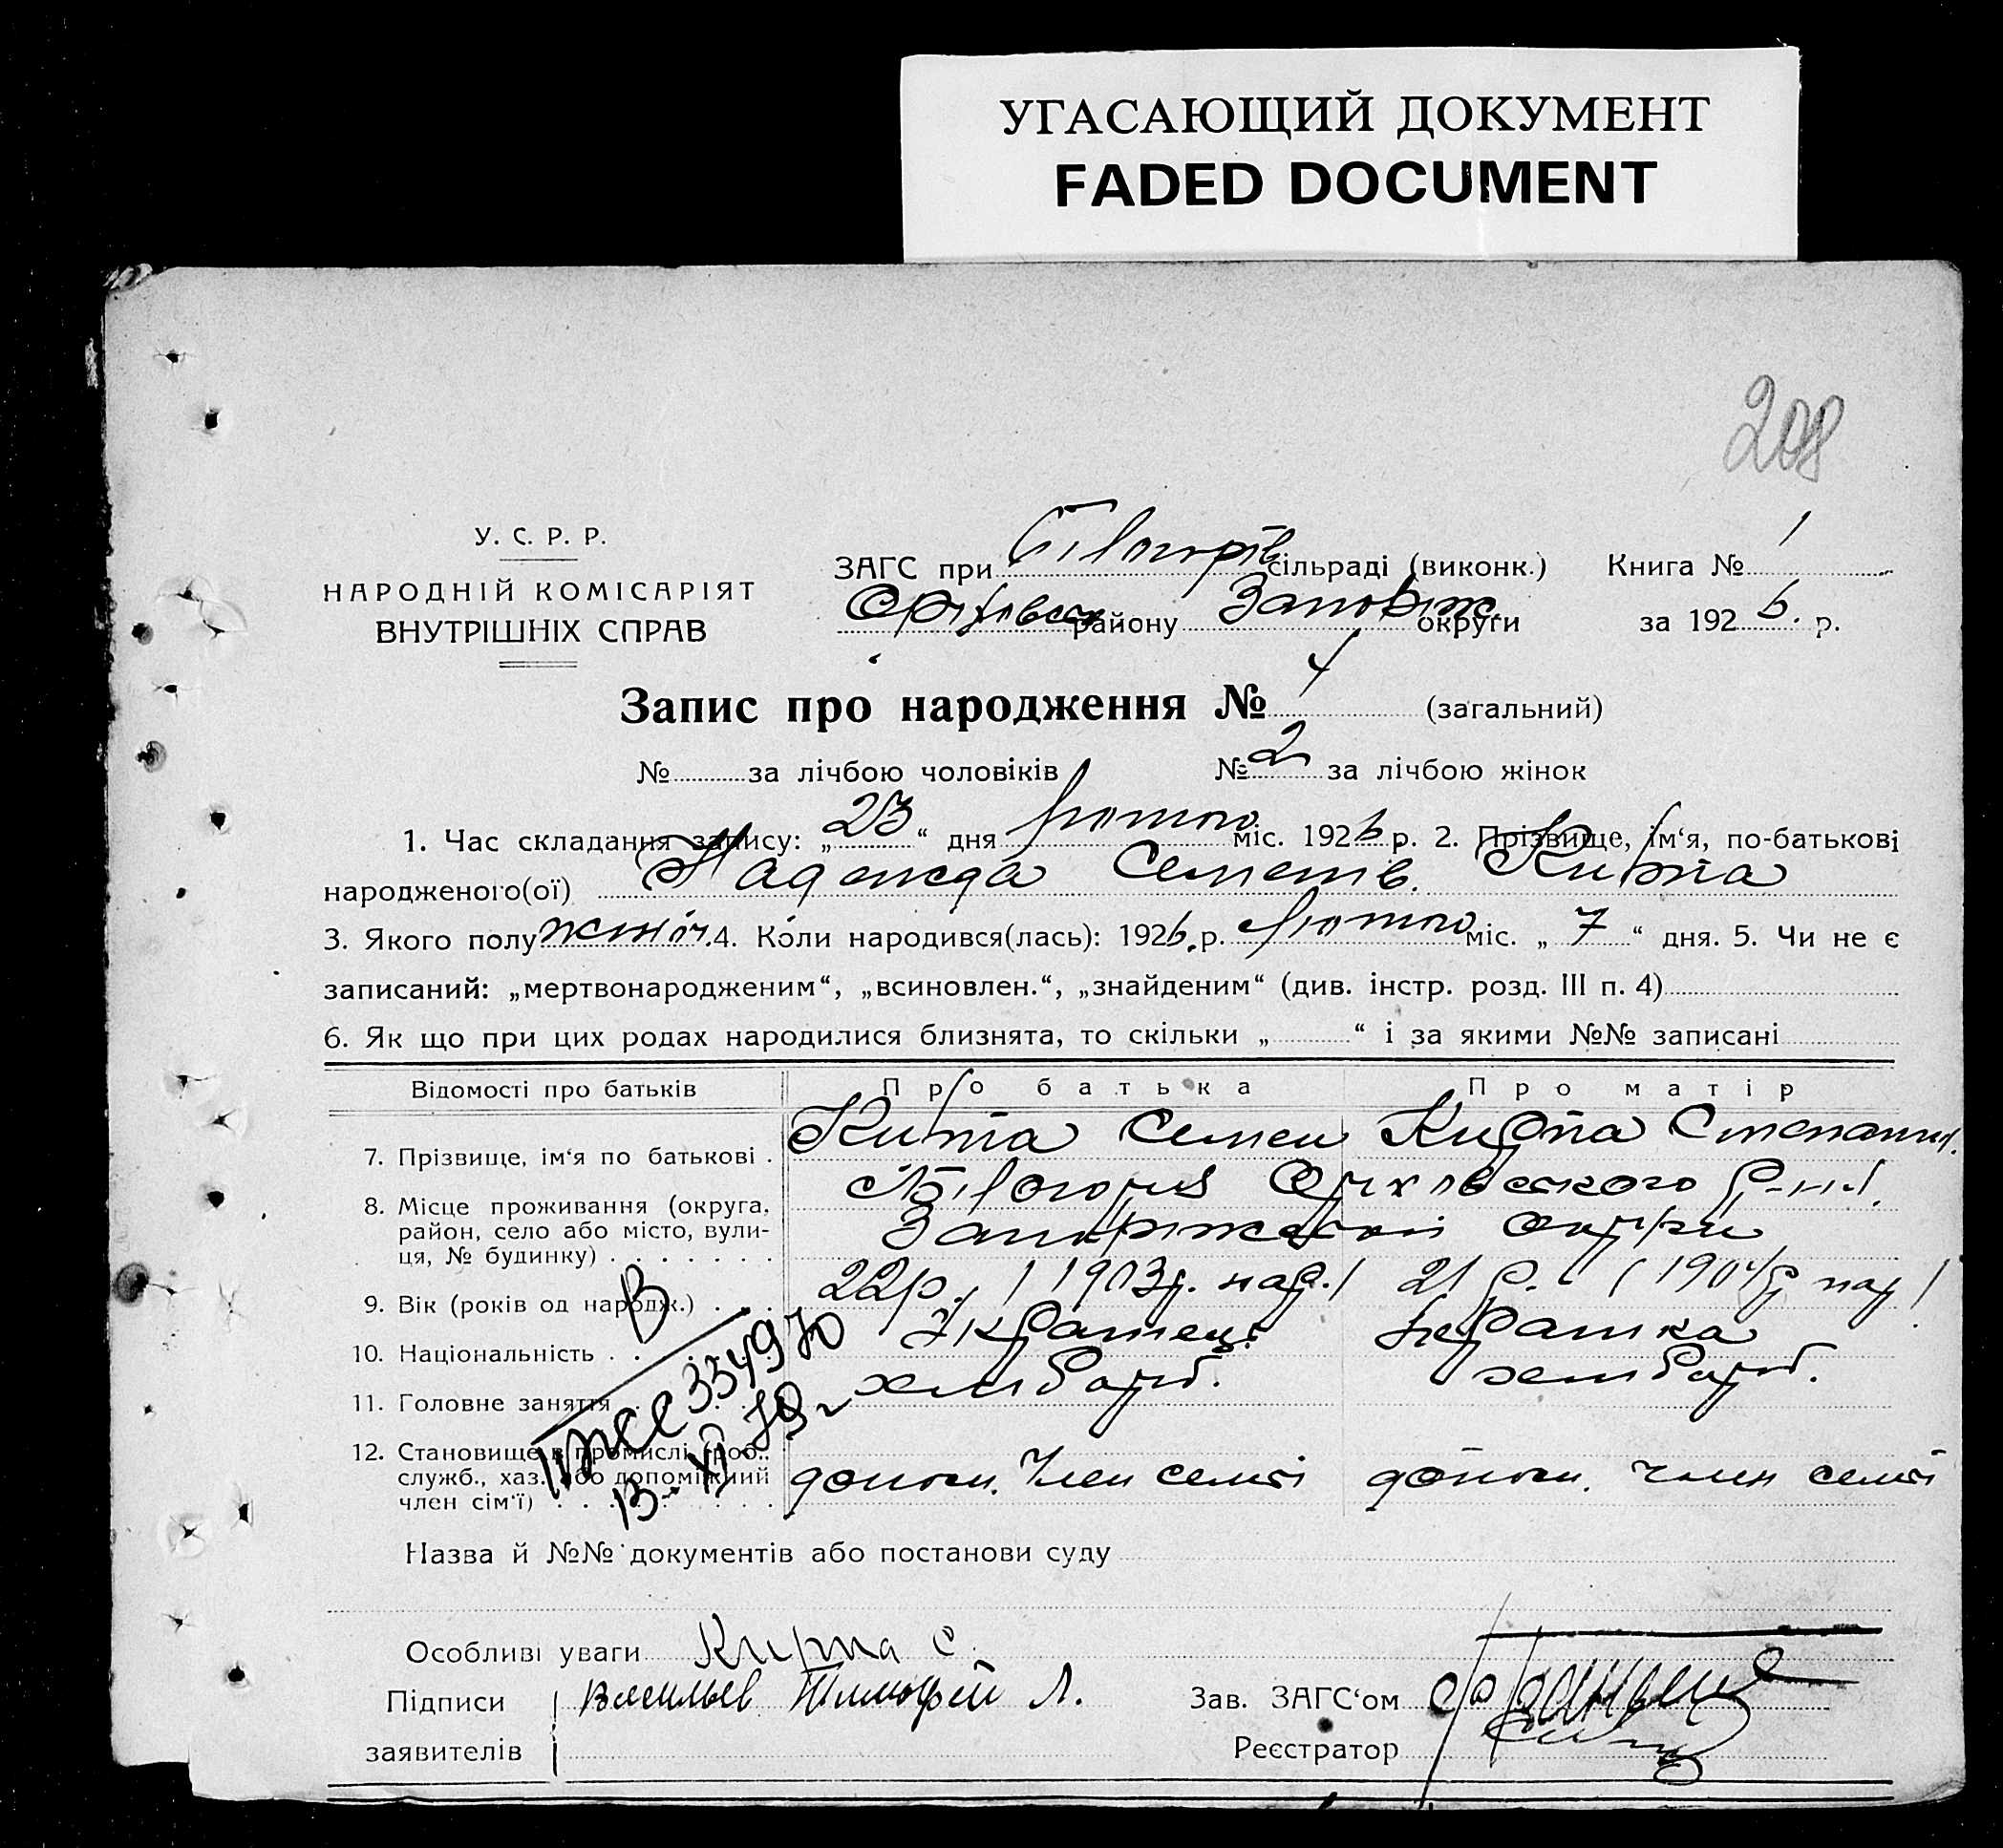 УГАСАЮЩИЙ ДОКУМЕНТ
FADED DOCUMENT
208
У. С. Р. Р.
НАРОДНІЙ КОМІСАРІЯТ
ВНУТРІШНІХ СПРАВ
ЗАГС при сільраді (виконк.) Книга № 1
району округи за 1926. р.
Запис про народження № 4 (загальний)
№ за лічбою чоловіків № 2 за лічбою жінок
1. Час складання запису: „23“ дня лютого міс. 1926 р. 2. Прізвище, ім‘я, по-батькові
народженого(ої) Надежда Семенів. Кирпа
3. Якого полу жіноч. 4. Коли народився(лась): 1926. р. лютого міс. „7“ дня. 5. Чи не є
записаний: „мертвонародженим“, „всиновлен.“, „знайденим“ (див. інстр. розд. III п. 4)
6. Як що при цих родах народилися близнята, то скільки „ “ і за якими №№ записані
Відомості про батьків Про батька Про матір
7. Прізвище, ім‘я по батькові . Кирпа Семен Кирпа
8. Місце проживання (округа, Білогорья Оріхівського р-ну.
район, село або місто, вули- Запоріжської округи
ця, № будинку)
9. Вік (років од народж.) 22 р. (1903 р. нар.) 21 р. (1904 р нар)
10. Національність . Українець Українка
11. Головне заняття хлібороб. хлібороб.
12. Становище в промислі (роб.,
служб., хаз. або допоміжний допом. член семті допом. член семті
член сім‘ї)
334970
13-XI-79г
Назва й №№ документів або постанови суду
Особливі уваги Кирпа С.
Підписи Васильев Тимофей Л. Зав. ЗАГС‘ом
заявителів Реєстратор